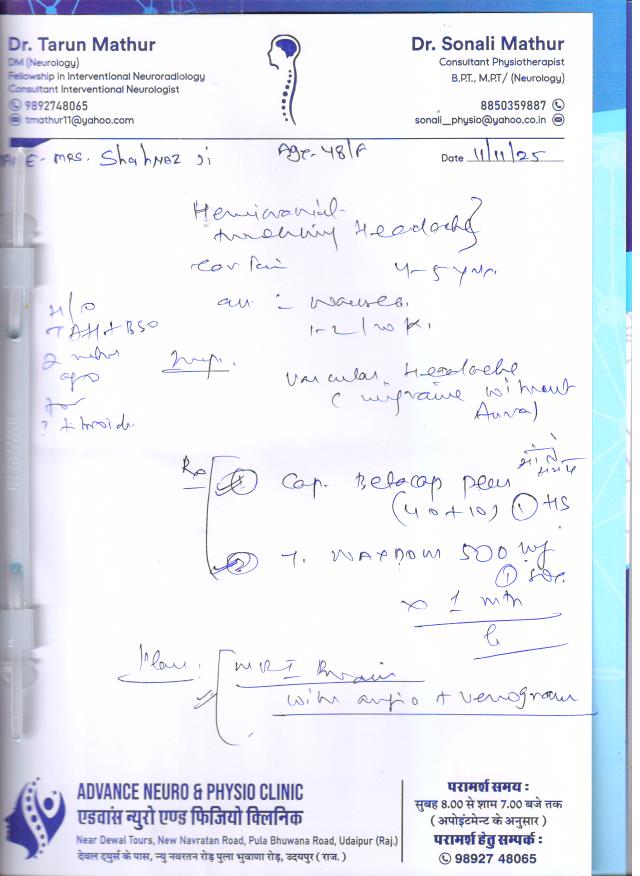 Dr. Tarun Mathur
DM (Neurology)
Fellowship in Interventional Neuroradiology
Consultant Interventional Neurologist
9892748065
tmathur11@yahoo.com
Dr. Sonali Mathur
Consultant Physiotherapist
B.P.T., M.P.T/ (Neurology)
8850359887
sonali_physio@yahoo.co.in
E- MRS. Shahnaz Ji Age- 48/F Date 11/11/25
Hemicranial
Headache
ear pain 4-5 yrs.
Nausea.
1-2/wk.
H/O
TAH+BSO
ago
for
Imp.
Vascular Headache
(migraine without
Aura)
Rx
1 Cap. Betacap plus
(40+10) 1 HS
2 T. NAXDOM 500 mg
1 SOS
x 1 mth
Plan: MRI Brain
with angio + venogram
ADVANCE NEURO & PHYSIO CLINIC
एडवांस न्युरो एण्ड फिजियो क्लिनिक
Near Dewal Tours, New Navratan Road, Pula Bhuwana Road, Udaipur (Raj.)
देवल ट्युर्स के पास, न्यु नवरतन रोड़ पुला भुवाणा रोड़, उदयपुर ( राज. )
परामर्श समय :
सुबह 8.00 से शाम 7.00 बजे तक
( अपोइंटमेन्ट के अनुसार )
परामर्श हेतु सम्पर्क :
98927 48065